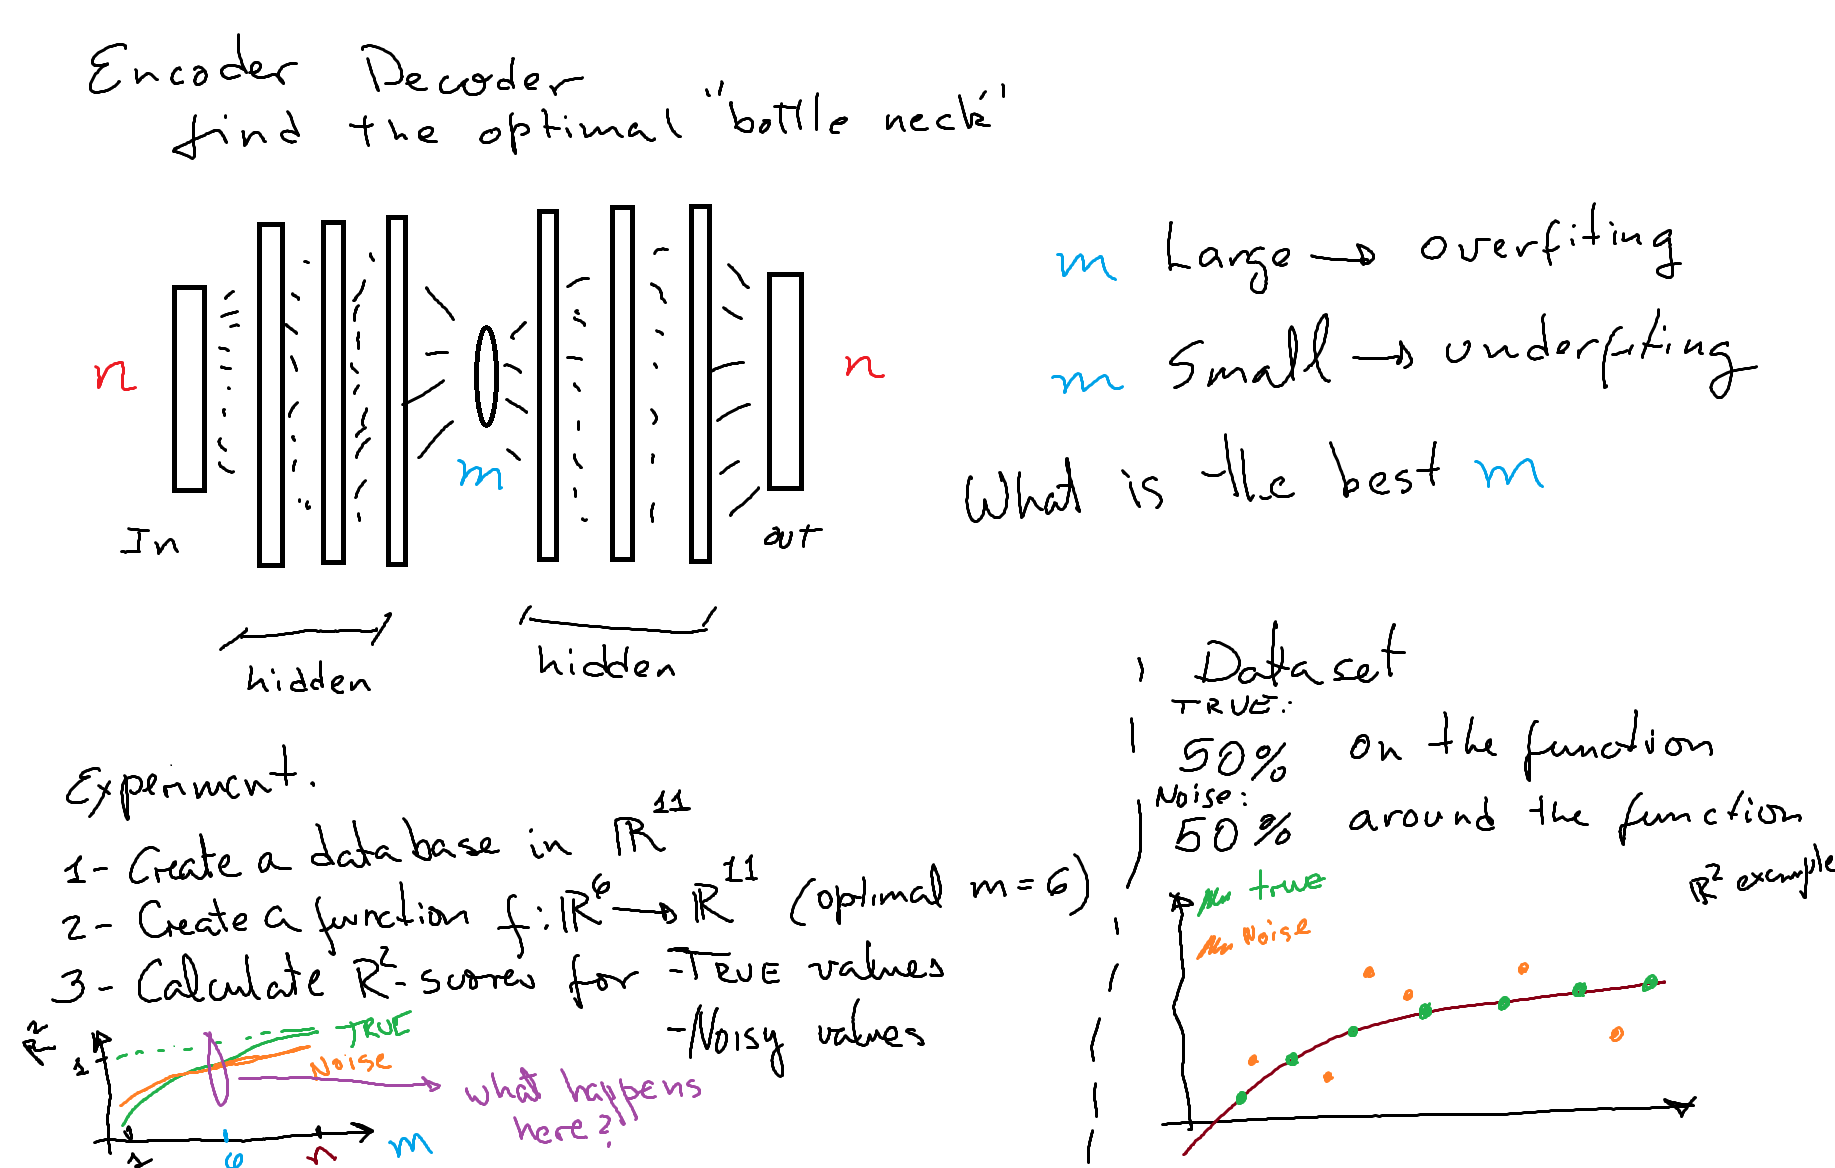 Encoder Decoder
find the optimal "bottle neck"
n
m
n
In
out
hidden
hidden
m Large → overfiting
m Small → underfiting
What is the best m
Experiment.
1- Create a database in ℝ¹¹
2- Create a function f: ℝ⁶ → ℝ¹¹ (optimal m = 6)
3- Calculate R²-scores for -TRUE values
-Noisy values
R²
1
TRUE
Noise
what happens
here?
1
6
n
m
Dataset
TRUE:
50% on the function
Noise:
50% around the function
ℝ² example
true
Noise